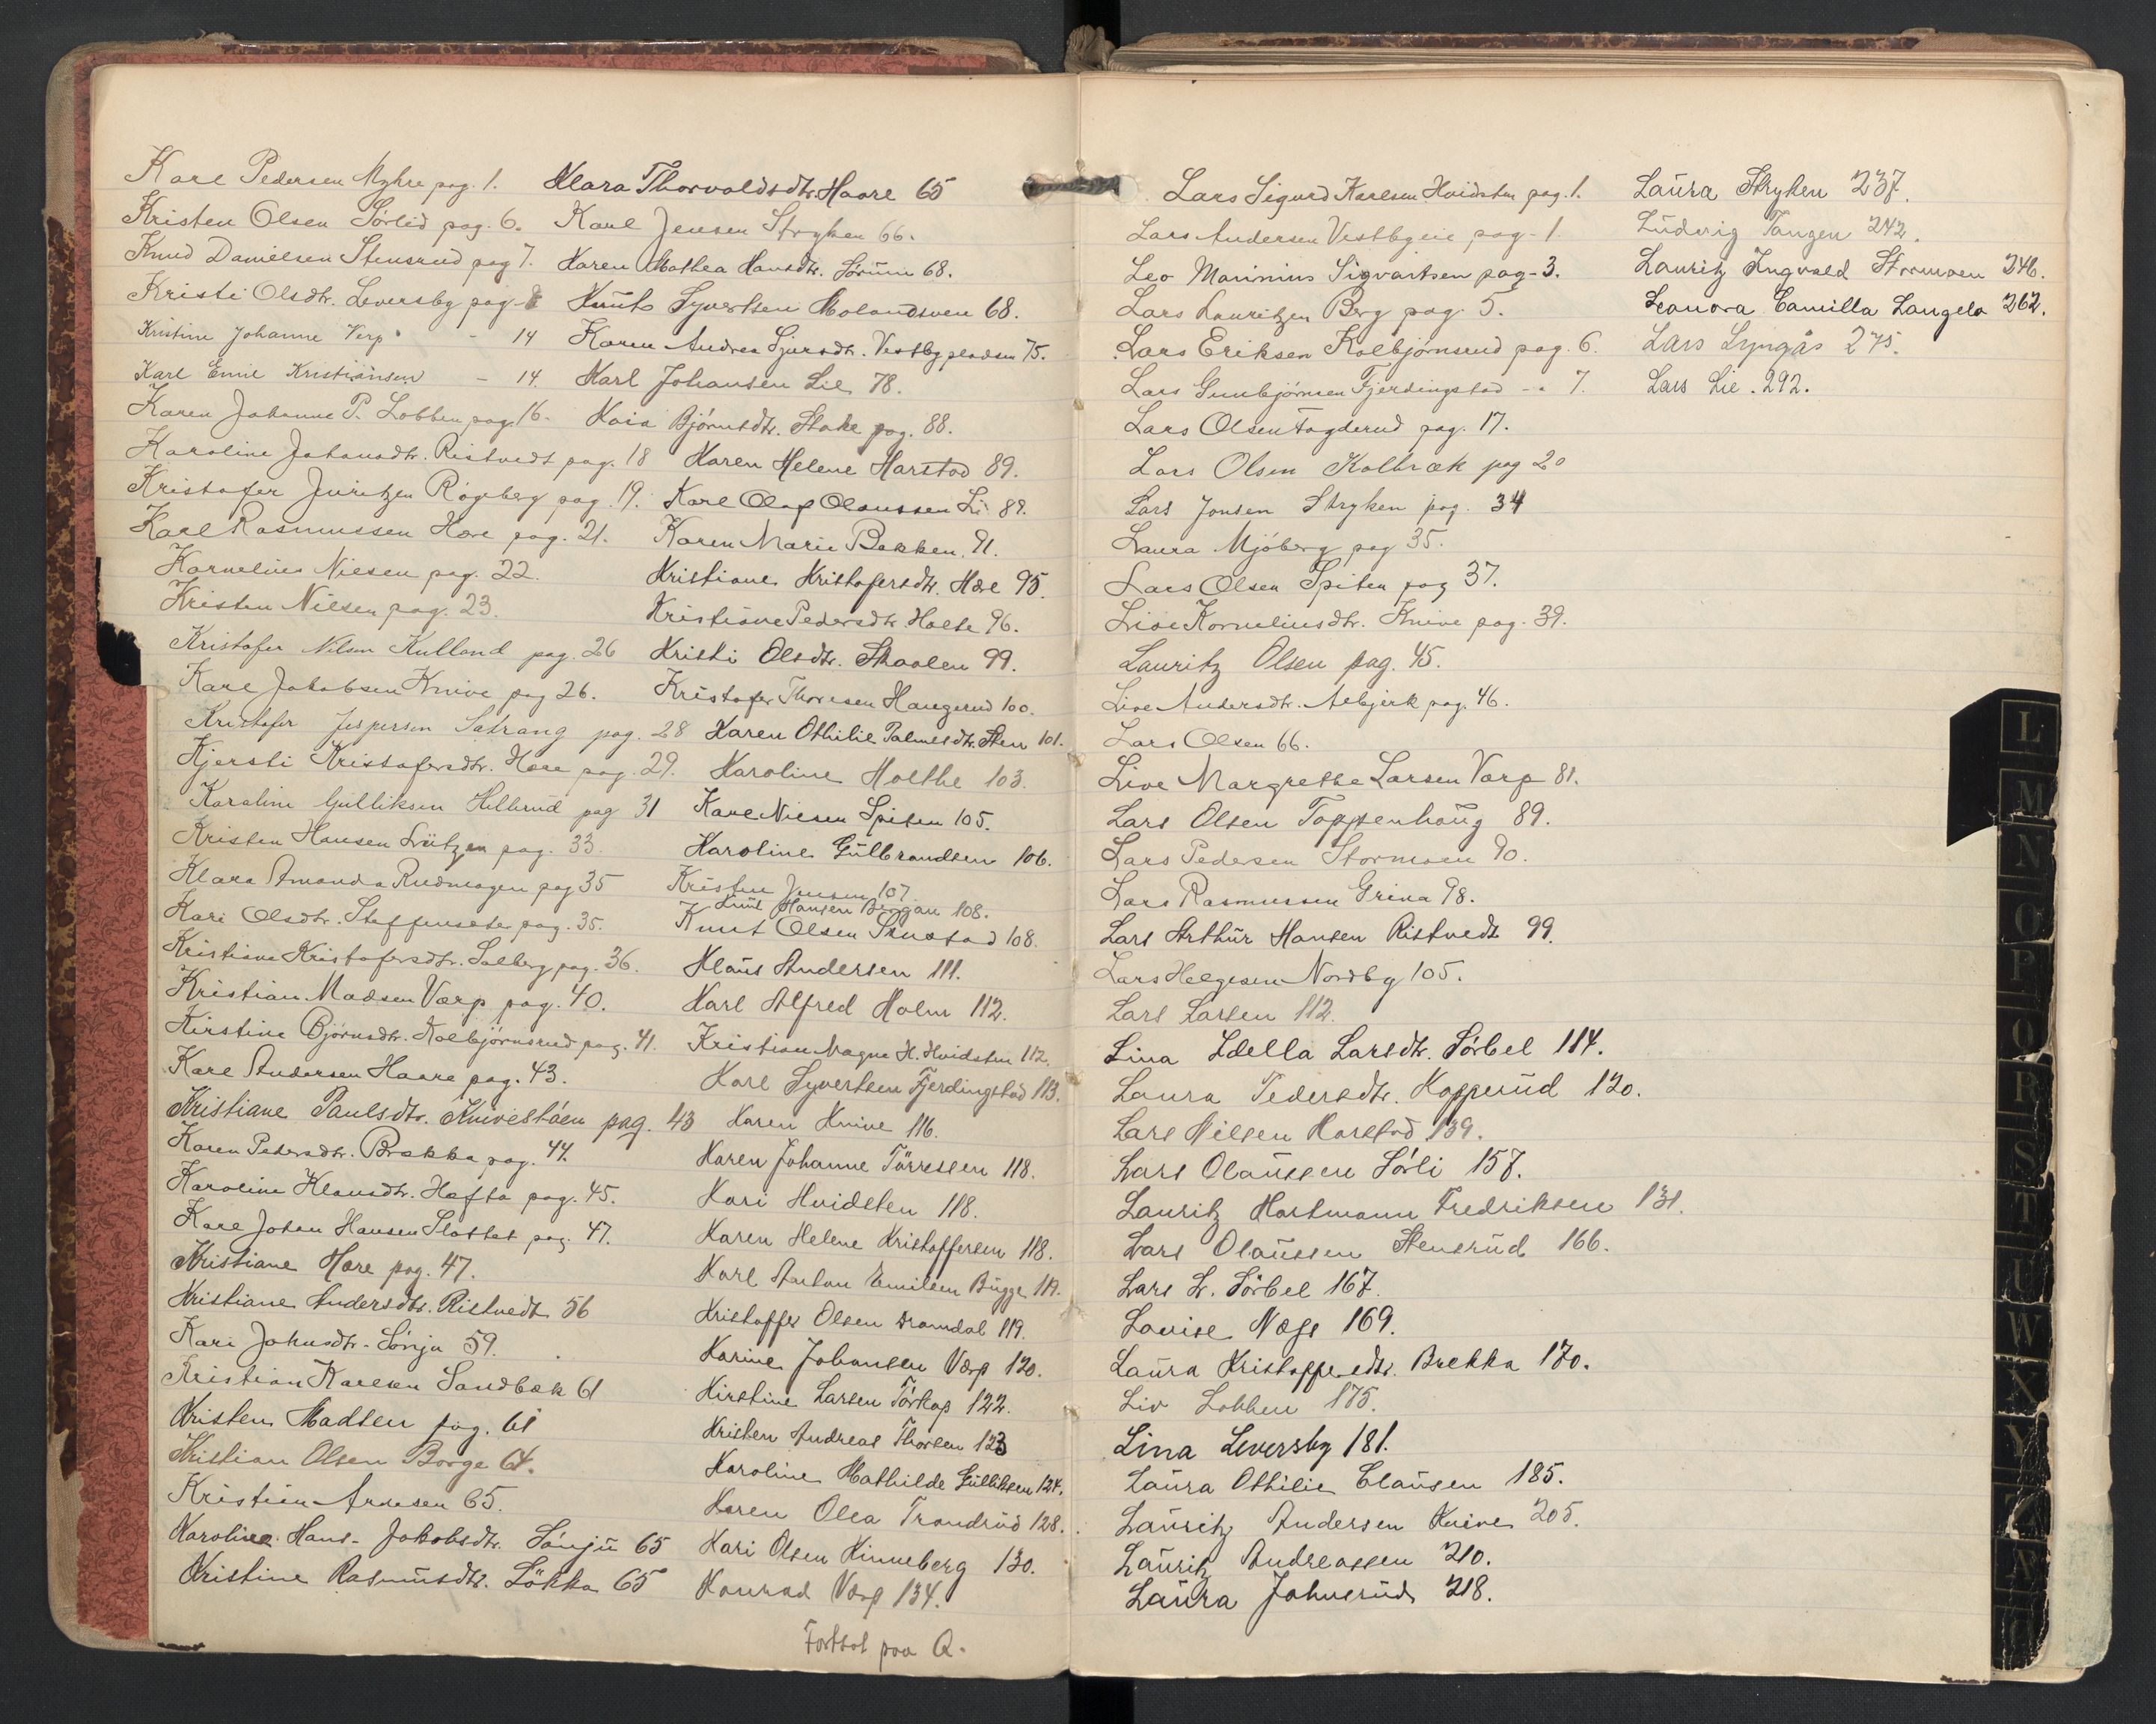 Karl Pedersen Myhre pag. 1.
Kristen Olsen Sørlid pag. 6.
Knud Danielsen Stensrud pag 7.
Kristi Olsdtr. Leversby pag. 8
Kristine Johanne Verp - 14
Karl Emil Kristiansen - 14.
Karen Johanne P. Lobben pag. 16.
Karoline Johansdtr. Ristvedt pag. 18
Kristofer Juritzen Rögeberg pag. 19.
Karl Rasmussen Hære pag. 21.
Kornelius Nilsen pag. 22.
Kristen Nilsen pag. 23.
Kristofer Nilsen Kulland pag. 26
Karl Jakobsen Knive pag 26.
Kristofer Jespersen Satrang pag. 28
Kjersti Kristofersdtr. Hære pag. 29.
Karoline Gulliksen Hillerud pag 31
Kristen Hansen Lützen pag. 33.
Klara Amanda Rudmogen pag 35
Kari Olsdtr. Steffenseter pag. 35.
Kristiane Kristofersdtr. Solberg pag. 36.
Kristian Madsen Værp pag. 40.
Kirstine Björnsdtr. Kolbjörnsrud pag. 41.
Karl Andersen Haare pag. 43.
Kristiane Paulsdtr. Knivestöen pag. 43
Karen Pedersdtr. Brekke pag. 44.
Karoline Klausdtr. Hofto pag. 45.
Karl Johan Hansen Slottet pag. 47.
Kristiane Hære pag. 47.
Kristiane Andersdtr. Ristvedt 56
Kari Johnsdtr. Sönju 59.
Kristian Karlsen Sandbæk 61
Kristen Madsen pag. 61
Kristian Olsen Borge 64.
Kristian Arnesen 65.
Karoline Hans-Jakobsdtr. Sönju 65
Kristine Rasmusdtr. Lökka 65
Klara Thorvaldsdtr. Haare 65
Karl Jensen Stryken 66.
Karen Mathea Hansdtr. Sörum 68.
Knut Syvertsen Molandsveen 68.
Karen Andrea Sjursdtr. Vestbypladsen 75.
Karl Johansen Lie 78.
Kaia Björnsdtr. Stake pag. 88.
Karen Helene Harstad 89.
Karl Olaf Olaussen Li 89.
Karen Marie Bakken 91.
Kristiane Kristofersdtr. Hære 95.
Kristiane Pedersdtr Holte 96.
Kristi Olsdtr. Skaalen 99.
Kristofer Thoresen Haugerud 100.
Karen Othilie Palmesdtr. Sten 101.
Karoline Holthe 103.
Karl Nilsen Spiten 105.
Karoline Gulbrandsen 106.
Kristen Jensen 107.
Knut Hansen Bergan 108.
Knut Olsen 108.
Klaus Andersen 111.
Karl Alfred Holm 112.
Kristian Magnus H. Hvidsten 112.
Karl Syvertsen Fjerdingstad 113.
Karen Knive 116.
Karen Johanne Törressen 118.
Kari Hvidsten 118.
Karen Helene Kristoffersen 118.
Karl Anton Emilsen Bugge 119.
Kristoffer Olsen Dramdal 119.
Karine Johansen Værp 120.
Kirstine Larsen Törkop 122.
Kristen Andreas Thorsen 123
Karoline Mathilde Gulliksen 124.
Karen Olea Trondrud 128.
Kari Olsen Kinneberg 130.
Konrad Værp 134.
Fortsat paa Q.
Lars Sigurd Karlsen Hvidsten pag. 1.
Lars Andersen Vestbyeie pag - 1.
Leo Marinius Sigvartsen pag - 3.
Lars Lauritzen Berg pag. 5.
Lars Eriksen Kolbjørnsrud pag. 6.
Lars Gunbjörnsen Fjerdingstad - " 7.
Lars Olsen Fagderud pag. 17.
Lars Olsen Kalbræk pag 20
Lars Jonsen Stryken pag. 34
Laura Mjöberg pag 35.
Lars Olsen Spiten pag 37.
Live Korneliusdtr. Knive pag. 39.
Lauritz Olsen pag. 45.
Live Andersdtr. Aebjerk pag. 46.
Lars Olsen 66.
Live Margrethe Larsen Værp 81.
Lars Olsen Toppenhaug 89.
Lars Pedersen Stormoen 90.
Lars Rasmussen Grina 98.
Lars Arthur Hansen Ristvedt 99.
Lars Helgesen Nordby 105.
Lars Larsen 112.
Lina Idella Larsdtr. Sörbel 114.
Laura Pedersdtr. Kopperud 120.
Lars Nilsen Harstad 139.
Lars Olaussen Sörli 157.
Lauritz Hartmann Fredriksen 131.
Lars Olaussen Stensrud 166.
Lars L. Sörbel 167.
Lovise Næss 169.
Laura Kristoffersdtr. Brekka 170.
Liv Lobben 175.
Lina Leversby 181.
Laura Othilie Clausen 185.
Lauritz Andersen Knive 205.
Lauritz Andreassen 210.
Laura Johnsrud 218.
Laura Stryken 237.
Ludvig Tangen 242.
Lauritz Ingvald Stormoen 246.
Leonora Camilla Langelo 262.
Lars Lyngås 275.
Lars Lie. 292.
L
M
N
O
P
Q
R
S
T
U
W
X
Y
Z
Æ
Ö